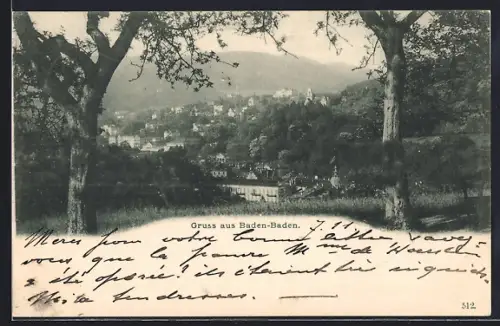 Gruss aus Baden-Baden.
7/11
Merci pour votre bonne lettre savez-
vous que la pauvre Mme de
a été opérée? ils étaient très inquiets
Mille tendresses.
512.